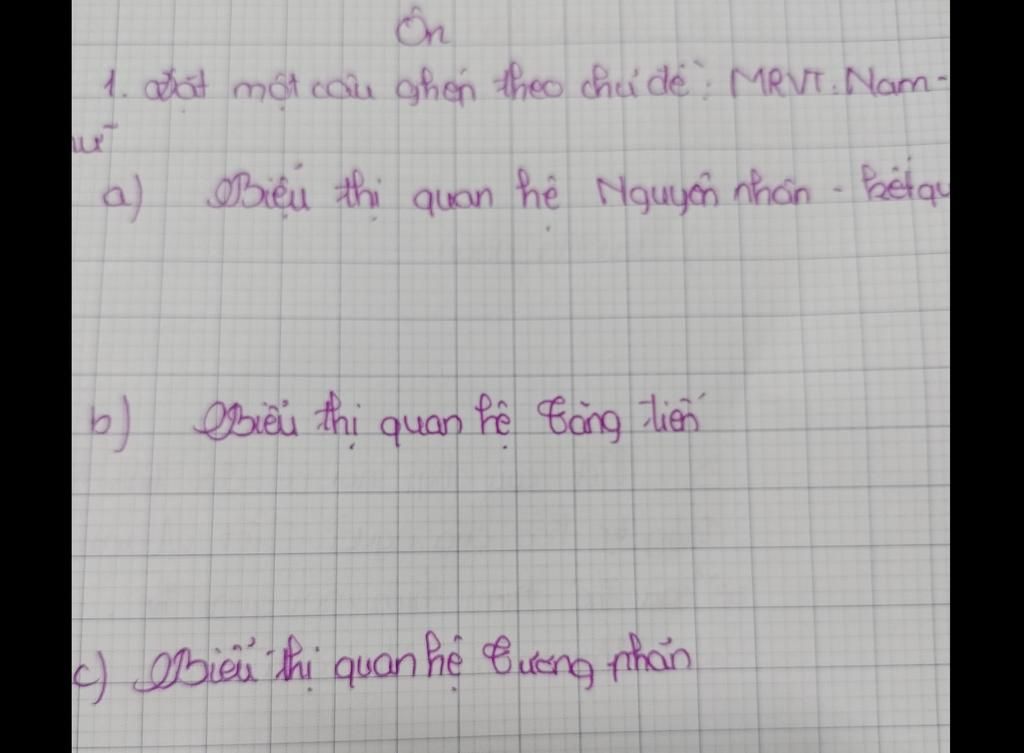 Ôn
1. Đặt một câu ghép theo chủ đề: MRVT. Nam-
nữ
a) Biểu thị quan hệ Nguyên nhân - kết qu
b) Biểu thị quan hệ tăng tiến
c) Biểu thị quan hệ tương phản